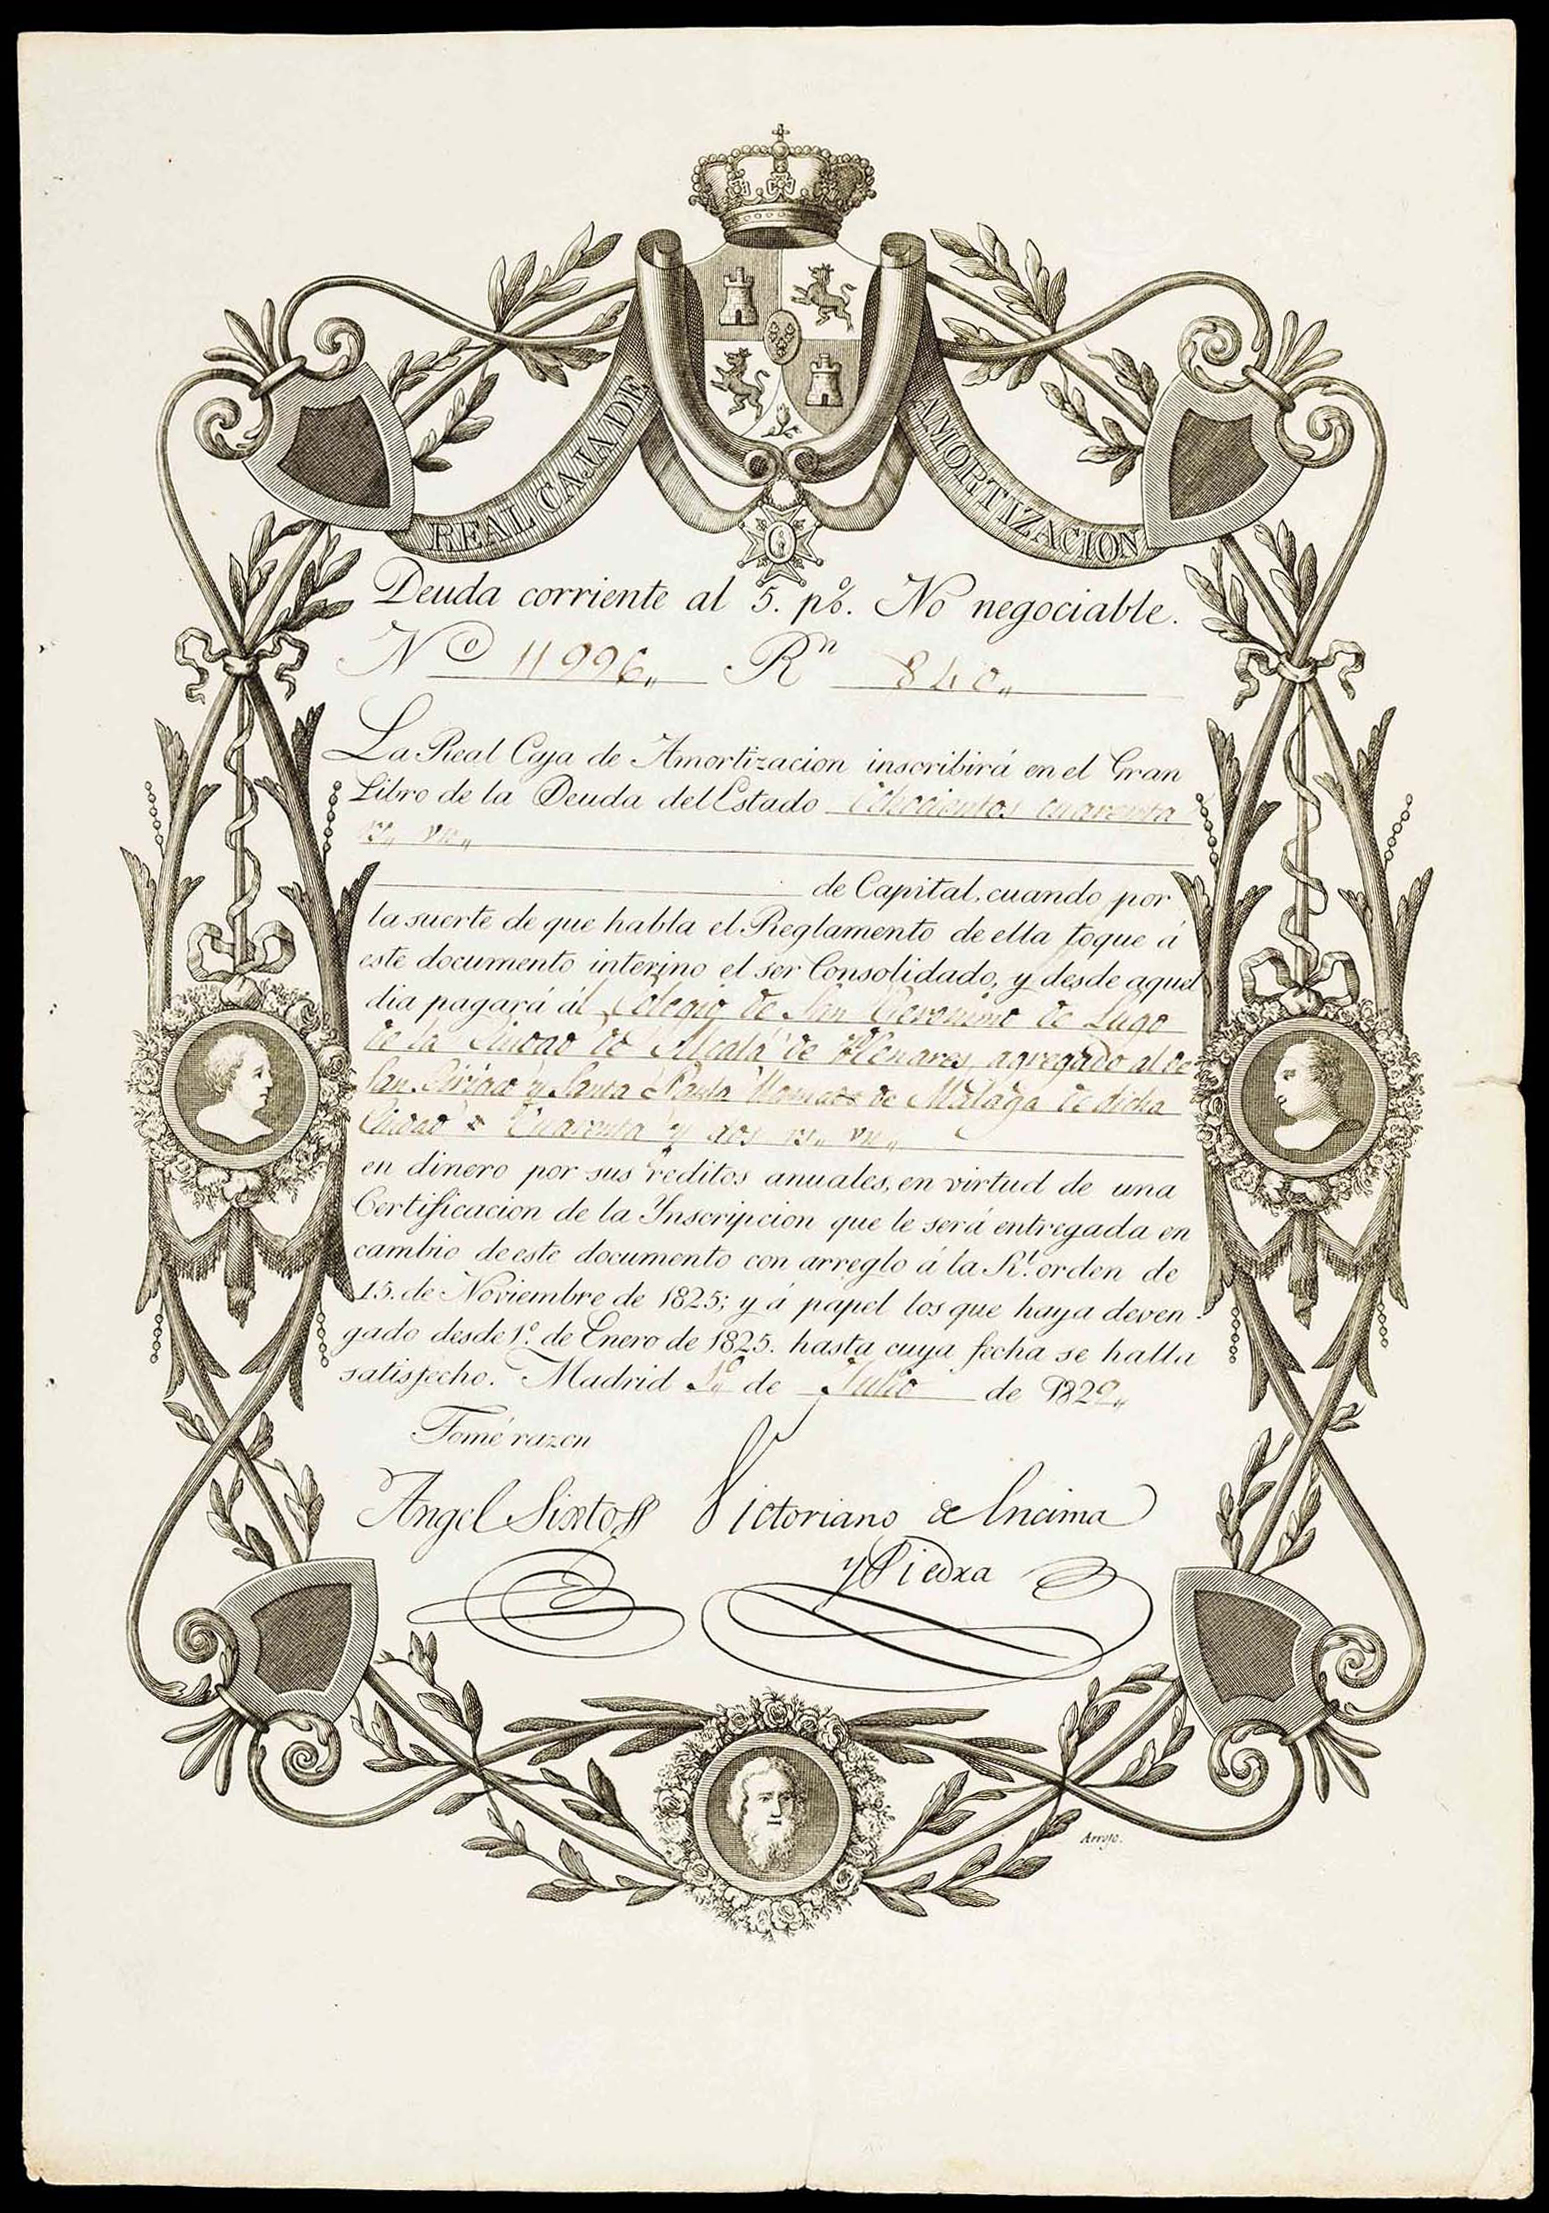 REAL CAJA DE AMORTIZACION
Deuda corriente al 5. p%. No negociable.
Nº 11996,, Rⁿ 840,,
La Real Caja de Amortizacion inscribirá en el Gran
Libro de la Deuda del Estado Ochocientos cuarenta
rs,, vn,,
de Capital, cuando por
la suerte de que habla el Reglamento de ella toque á
este documento interino el ser Consolidado, y desde aquel
dia pagará ál Colegio de San Geronimo de Lugo
de la Ciudad de Alcalá de Henares, agregado al de
San Ciriaco y Santa Paula de Málaga de dicha
Ciudad Cuarenta y dos rs,, vn,,
en dinero por sus réditos anuales, en virtud de una
Certificacion de la Inscripcion que le será entregada en
cambio de este documento con arreglo á la Rl. orden de
15. de Noviembre de 1825; y á papel los que haya deven-
gado desde 1º. de Enero de 1825. hasta cuya fecha se halla
satisfecho. Madrid 1º de Julio de 1829,,
Tomé razon
Angel Sixto Victoriano de Encima
y Piedra
Arrojo.